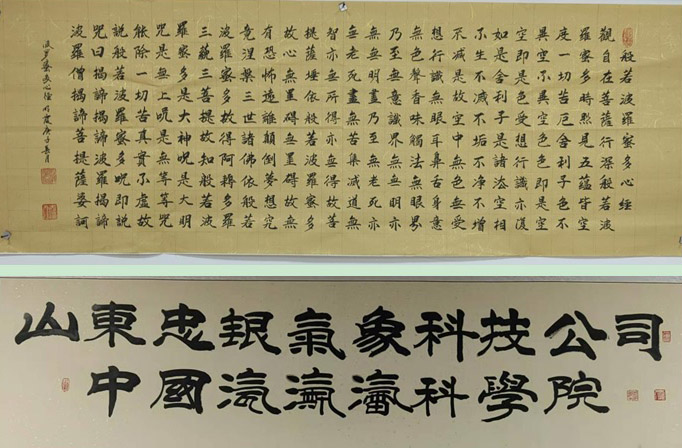 般若波羅蜜多心經
觀自在菩薩行深般若波
羅蜜多時照見五蘊皆空
度一切苦厄舍利子色不
異空不異色色即是空
空即是色受想行識亦復
如是舍利子是諸法空相
不生不滅不垢不淨不增
不減是故空中無色無受
想行識無眼耳鼻舌身意
無色聲香味觸法無眼界
乃至無意識界無無明亦
無無明盡乃至無老死亦
無老死盡無苦集滅道無
智亦無所得故菩
提薩埵依般若波羅蜜多
故心無罣礙無罣礙故無
有恐怖遠離顛倒夢想究
竟涅槃三世諸佛依般若
波羅蜜多故得阿耨多羅
三藐三菩提故知般若波
羅蜜多是大神咒是大明
咒是無上咒是無等等咒
能除一切苦真實不虛故
說般若波羅蜜多咒即說
咒曰揭諦揭諦波羅揭諦
波羅僧揭諦菩提薩婆訶
心經 庚子 月
山東忠銀氣象科技公司
中國科學院